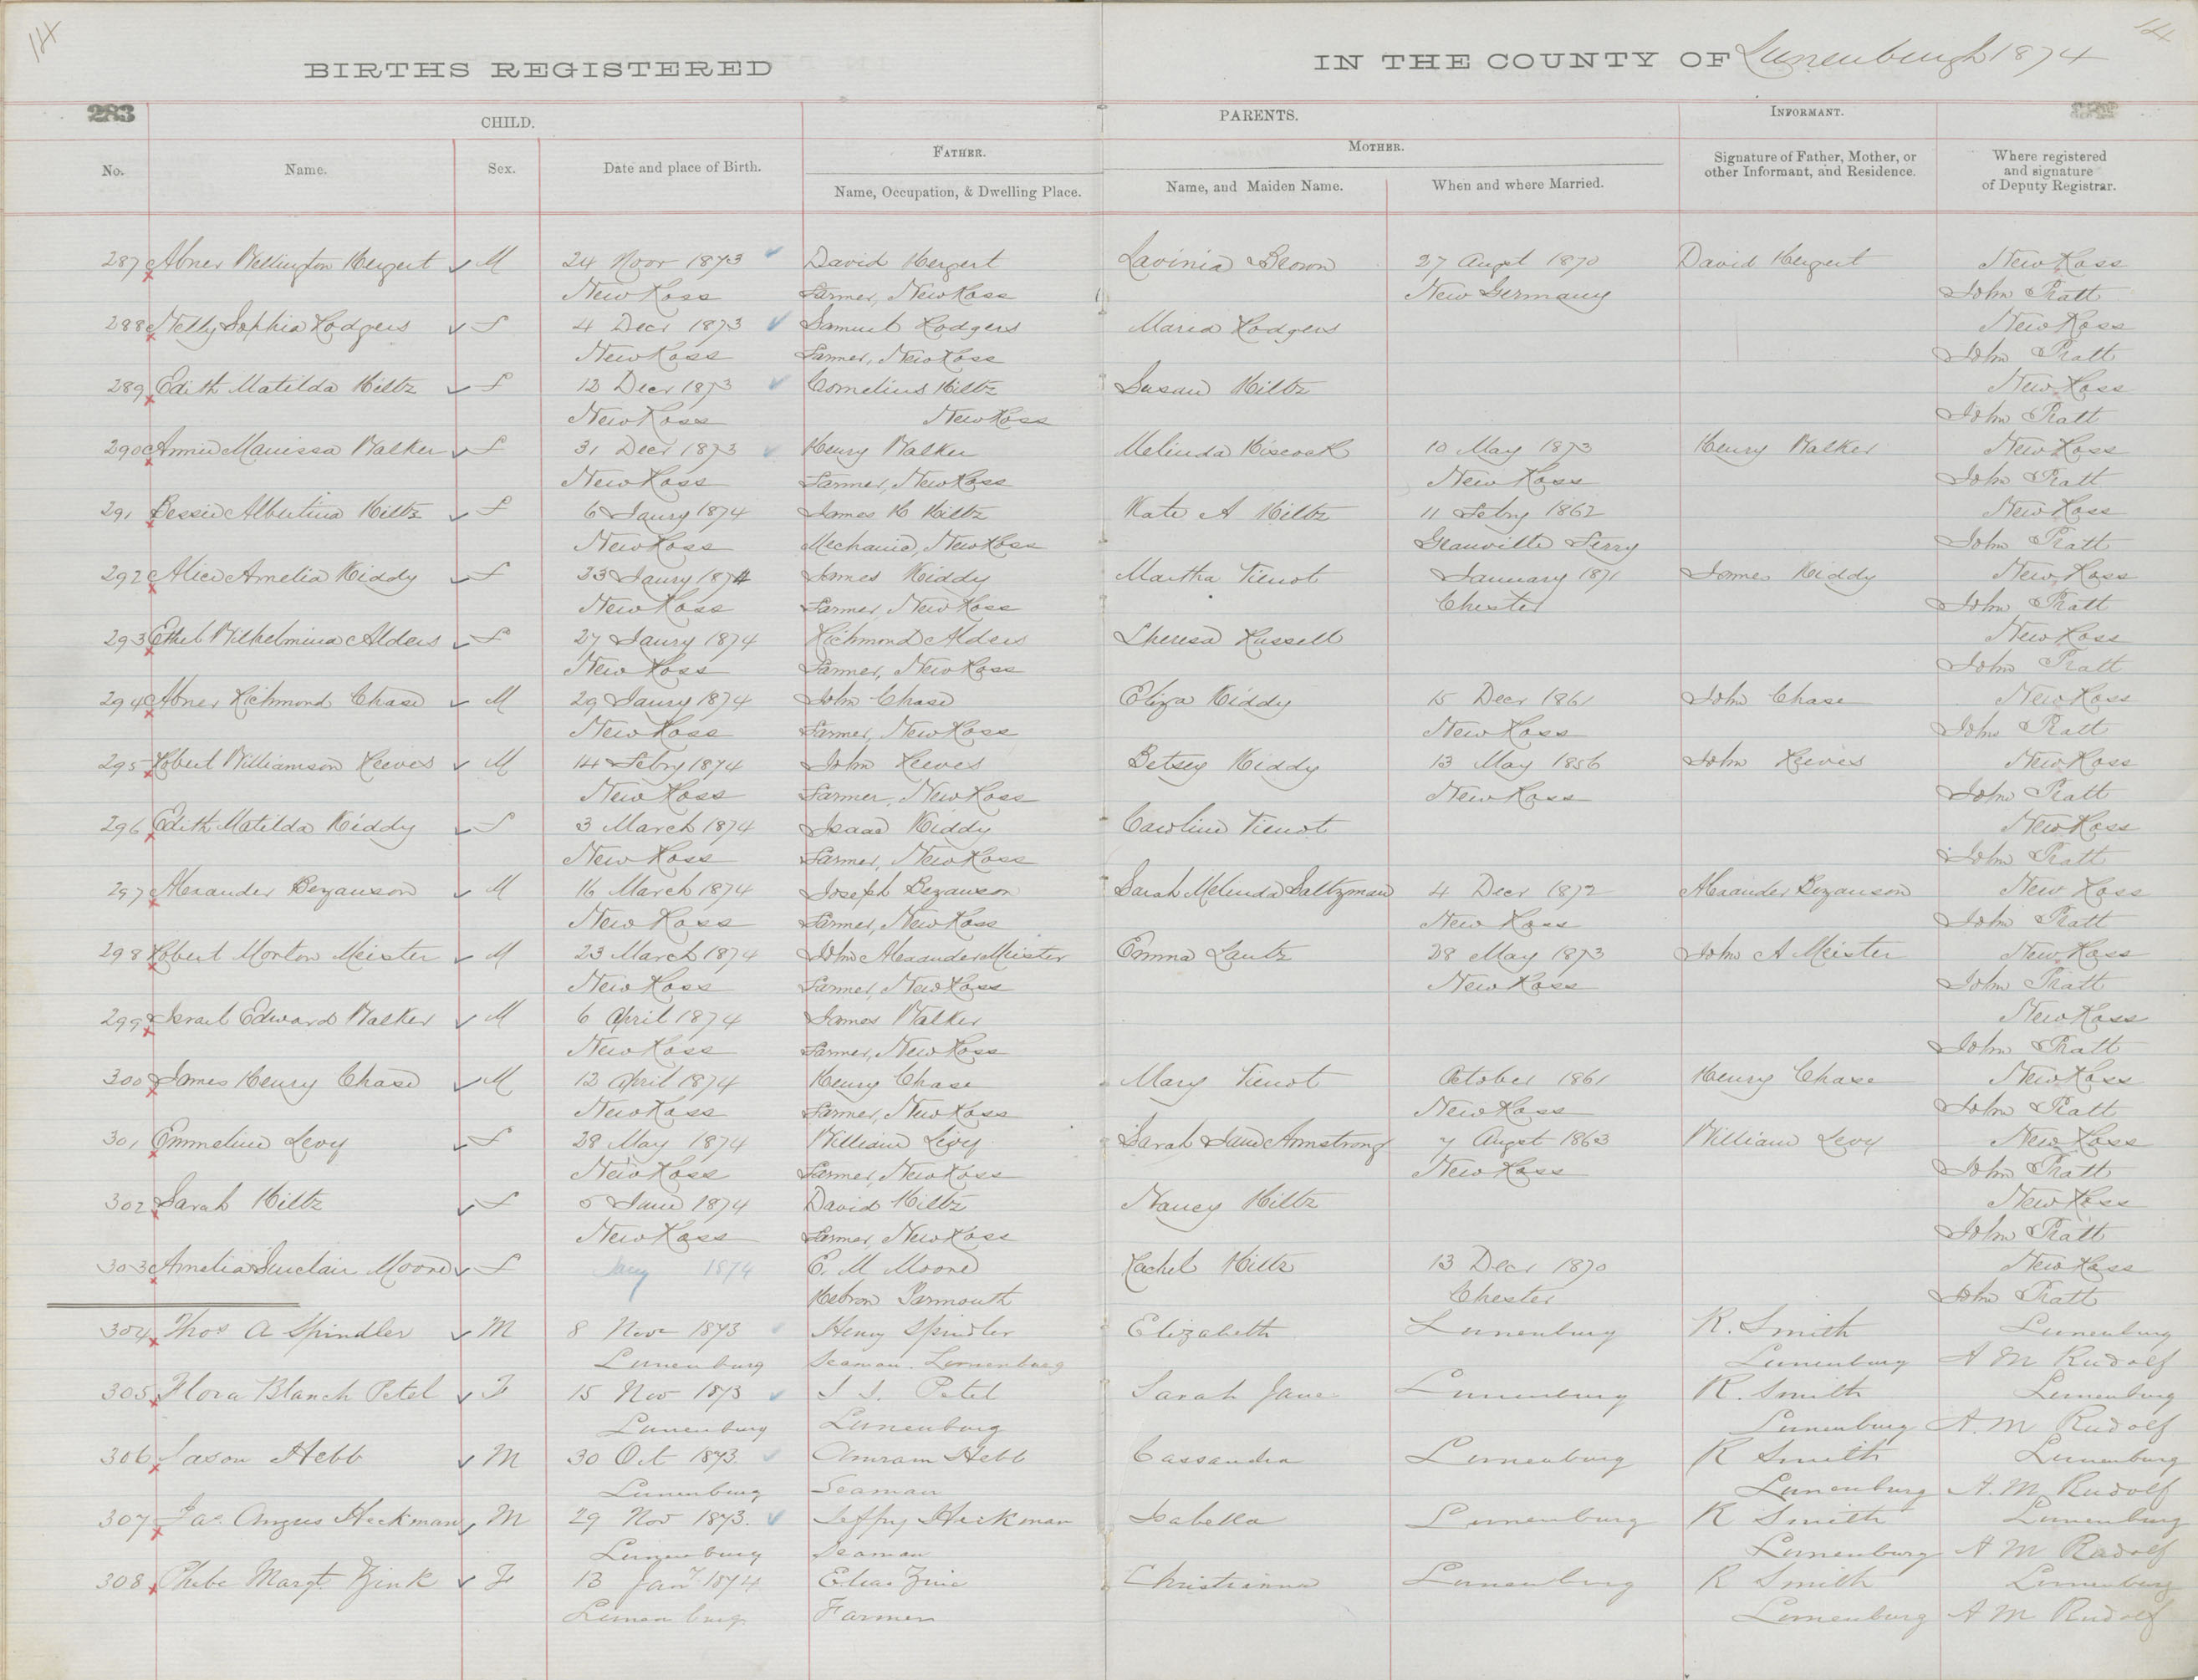 14
14
BIRTHS REGISTERED IN THE COUNTY OF Lunenburgh 1874
283
CHILD. PARENTS. INFORMANT.
No. Name. Sex. Date and place of Birth. FATHER. MOTHER. Signature of Father, Mother, or other Informant, and Residence. Where registered and signature of Deputy Registrar.
Name, Occupation, & Dwelling Place. Name, and Maiden Name. When and where Married.
287 Abner Wellington Hergert M 24 Novr 1873 David Hergert Lavinia Brown 27 Augst 1870 David Hergert New Ross
New Ross Farmer, New Ross New Germany John Pratt
288 Nelly Sophia Rodgers F 4 Decr 1873 Samuel Rodgers Maria Rodgers New Ross
New Ross Farmer, New Ross John Pratt
289 Edith Matilda Hiltz F 12 Decr 1873 Cornelius Hiltz Susan Hiltz New Ross
New Ross New Ross John Pratt
290 Annie Walker F 31 Decr 1873 Henry Walker Melinda Hiscock 10 May 1873 Henry Walker New Ross
New Ross Farmer, New Ross New Ross John Pratt
291 Bessie Albertina Hiltz F 6 Jaury 1874 James H Hiltz Kate A Hiltz 11 Febry 1862 New Ross
New Ross Mechanic, New Ross Granville Ferry John Pratt
292 Alice Amelia Kiddy F 23 Jaury 1874 James Kiddy Martha Tienot January 1871 James Kiddy New Ross
New Ross Farmer, New Ross Chester John Pratt
293 Ethel Wilhelmina Alders F 27 Jaury 1874 Richmond Alders Theresa Russell New Ross
New Ross Farmer, New Ross John Pratt
294 Abner Richmond Chase M 29 Jaury 1874 John Chase Eliza Kiddy 15 Decr 1861 John Chase New Ross
New Ross Farmer, New Ross New Ross John Pratt
295 Robert Williamson Reeves M 14 Febry 1874 John Reeves Betsey Kiddy 13 May 1856 John Reeves New Ross
New Ross Farmer, New Ross New Ross John Pratt
296 Edith Matilda Kiddy F 3 March 1874 Isaac Kiddy Caroline Tienot New Ross
New Ross Farmer, New Ross John Pratt
297 Alexander Bezanson M 16 March 1874 Joseph Bezanson Sarah Melinda Saltzman 4 Decr 1872 Alexander Bezanson New Ross
New Ross Farmer, New Ross New Ross John Pratt
298 Robert Morton Meister M 23 March 1874 John Alexander Meister Emma Lantz 28 May 1873 John A Meister New Ross
New Ross Farmer, New Ross New Ross John Pratt
299 Israel Edward Walker M 6 April 1874 James Walker New Ross
New Ross Farmer, New Ross John Pratt
300 James Henry Chase M 12 April 1874 Henry Chase Mary Tienot October 1861 Henry Chase New Ross
New Ross Farmer, New Ross New Ross John Pratt
301 Emmeline Levy F 28 May 1874 William Levy Sarah Jane Armstrong 7 Augst 1863 William Levy New Ross
New Ross Farmer, New Ross New Ross John Pratt
302 Sarah Hiltz F 5 June 1874 David Hiltz Nancy Hiltz New Ross
New Ross Farmer, New Ross John Pratt
303 Amelia Sinclair Moore F Jany 1874 E. M Moore Rachel Hiltz 13 Decr 1870 New Ross
Hebron Yarmouth Chester John Pratt
304 Thos A Spindler M 8 Nov 1873 Henry Spindler Elizabeth Lunenburg R. Smith Lunenburg
Lunenburg Seaman. Lunenburg Lunenburg A M Rudolf
305 Flora Blanch Petel F 15 Nov 1873 Petel Sarah Jane Lunenburg R. Smith Lunenburg
Lunenburg Lunenburg Lunenburg A. M Rudolf
306 Jason Hebb M 30 Oct 1873. Amram Hebb Cassandra Lunenburg R Smith Lunenburg
Lunenburg Seaman Lunenburg A. M. Rudolf
307 Jas. Angus Heckman M 29 Nov 1873. Jeffry Heckman Isabella Lunenburg R Smith Lunenburg
Lunenburg Seaman Lunenburg A M Rudolf
308 Phebe Margt Zink F 13 Jany 1874 Elias Zinc Christianna Lunenburg R Smith Lunenburg
Lunenburg Farmer Lunenburg A M Rudolf